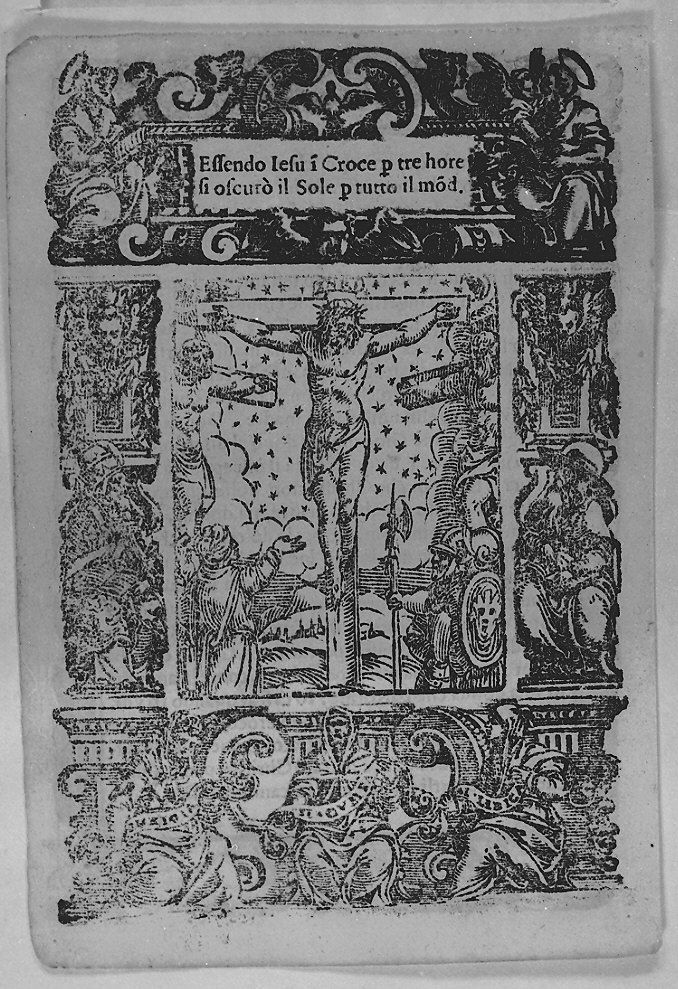 Eſſendo Ieſu ī Croce ꝑ tre hore
ſi oſcurò il Sole ꝑ tutto il mõd.